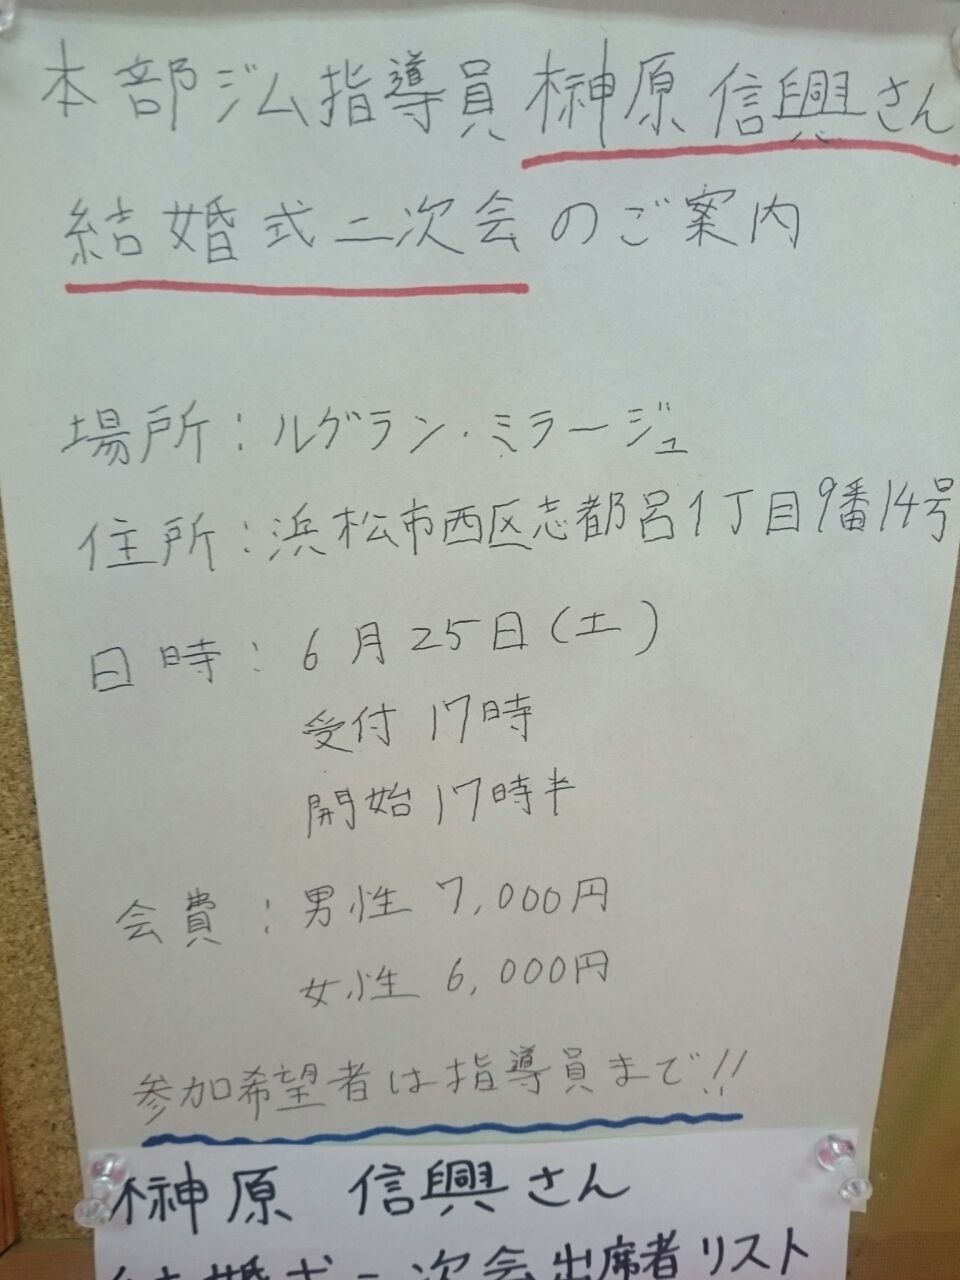 本部ジム指導員 榊原 信興さん
結婚式二次会のご案内
場所：ルグラン・ミラージュ
住所：浜松市西区志都呂1丁目9番14号
日時：6月25日(土)
受付 17時
開始 17時半
会費：男性 7,000円
女性 6,000円
参加希望者は指導員まで!!
榊原 信興さん
結婚式二次会出席者リスト